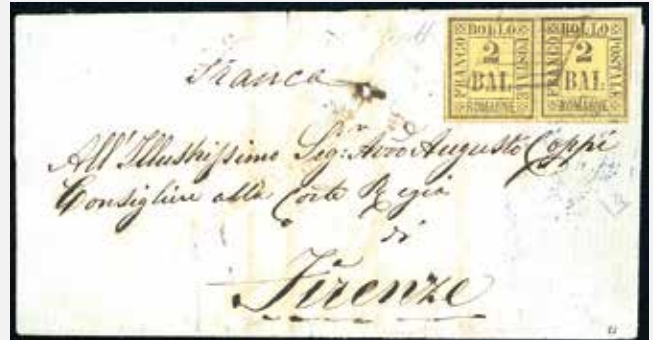 FRANCO BOLLO POSTALE ROMAGNE 2 BAJ
FRANCO BOLLO POSTALE ROMAGNE 2 BAJ
Franca
All'Illustrissimo Sigr. Avvo Augusto Coppi
Consigliere alla Corte Regia
di
Firenze